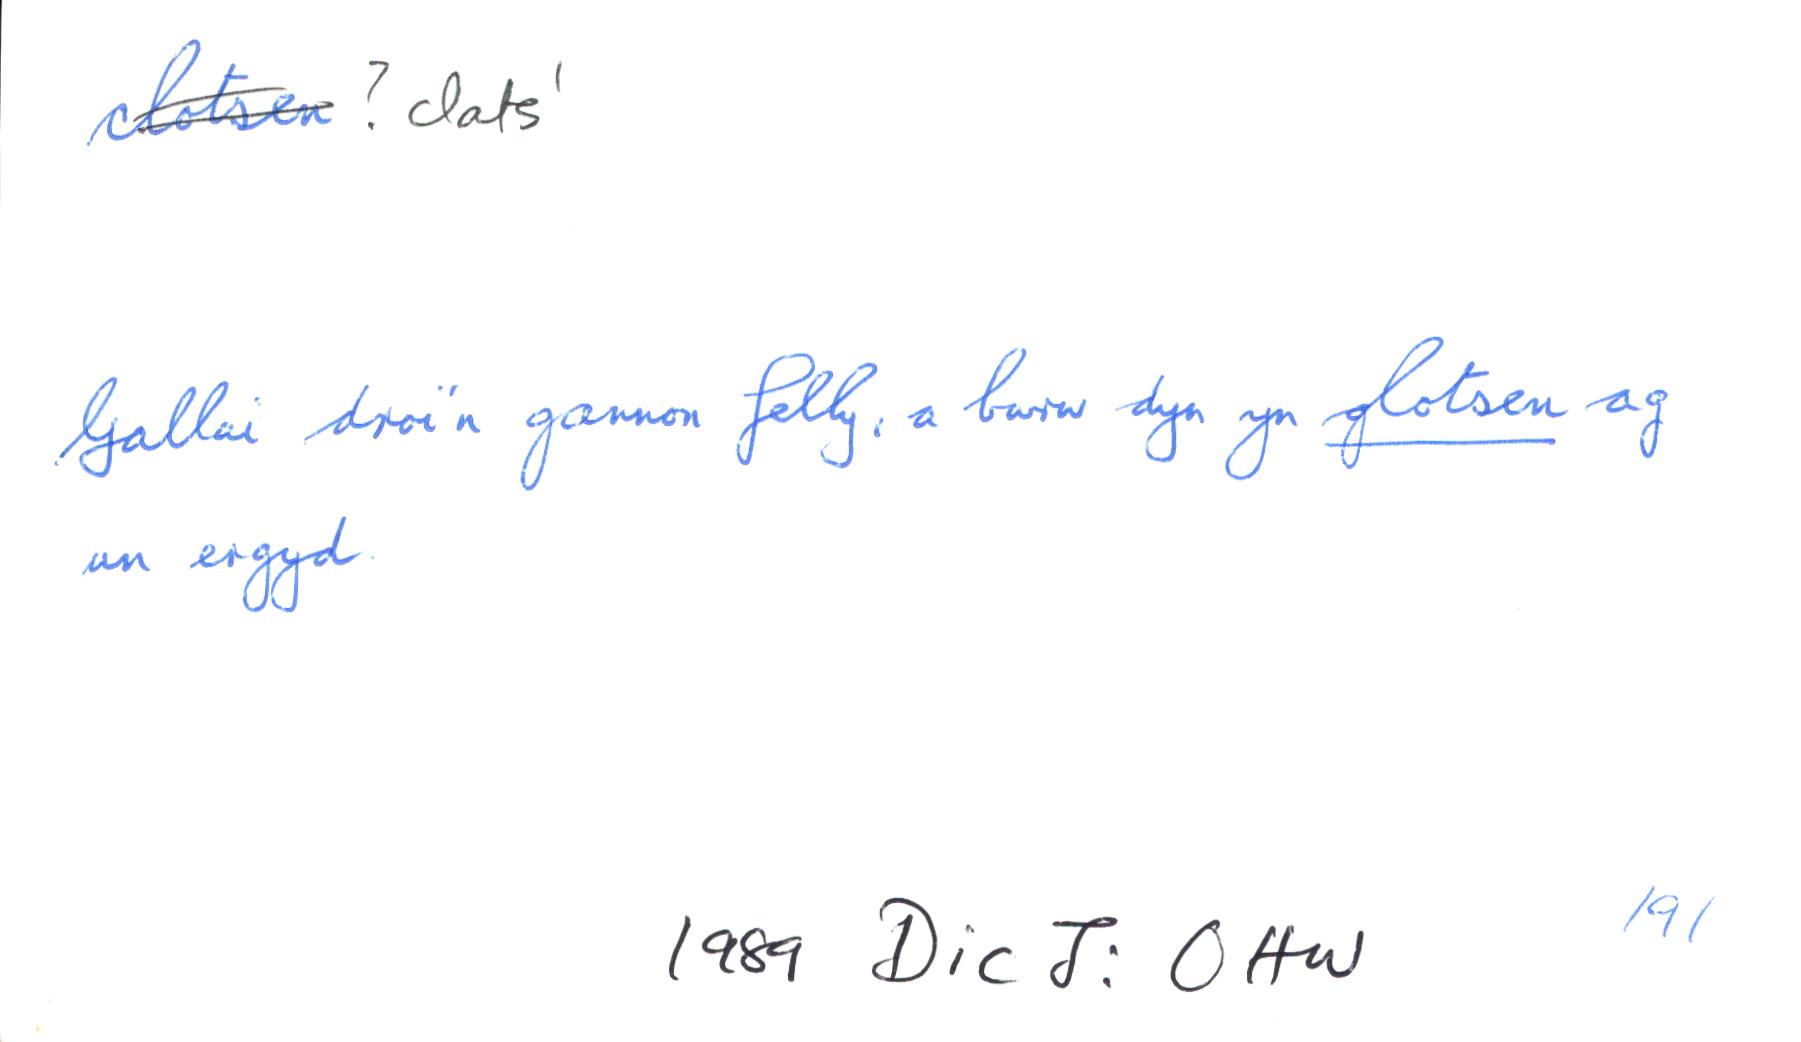 clotsen ? clats'
Gallai droi'n gannon felly, a bwrw dyn yn glotsen ag
un ergyd.
1989 Dic J: OHW
191